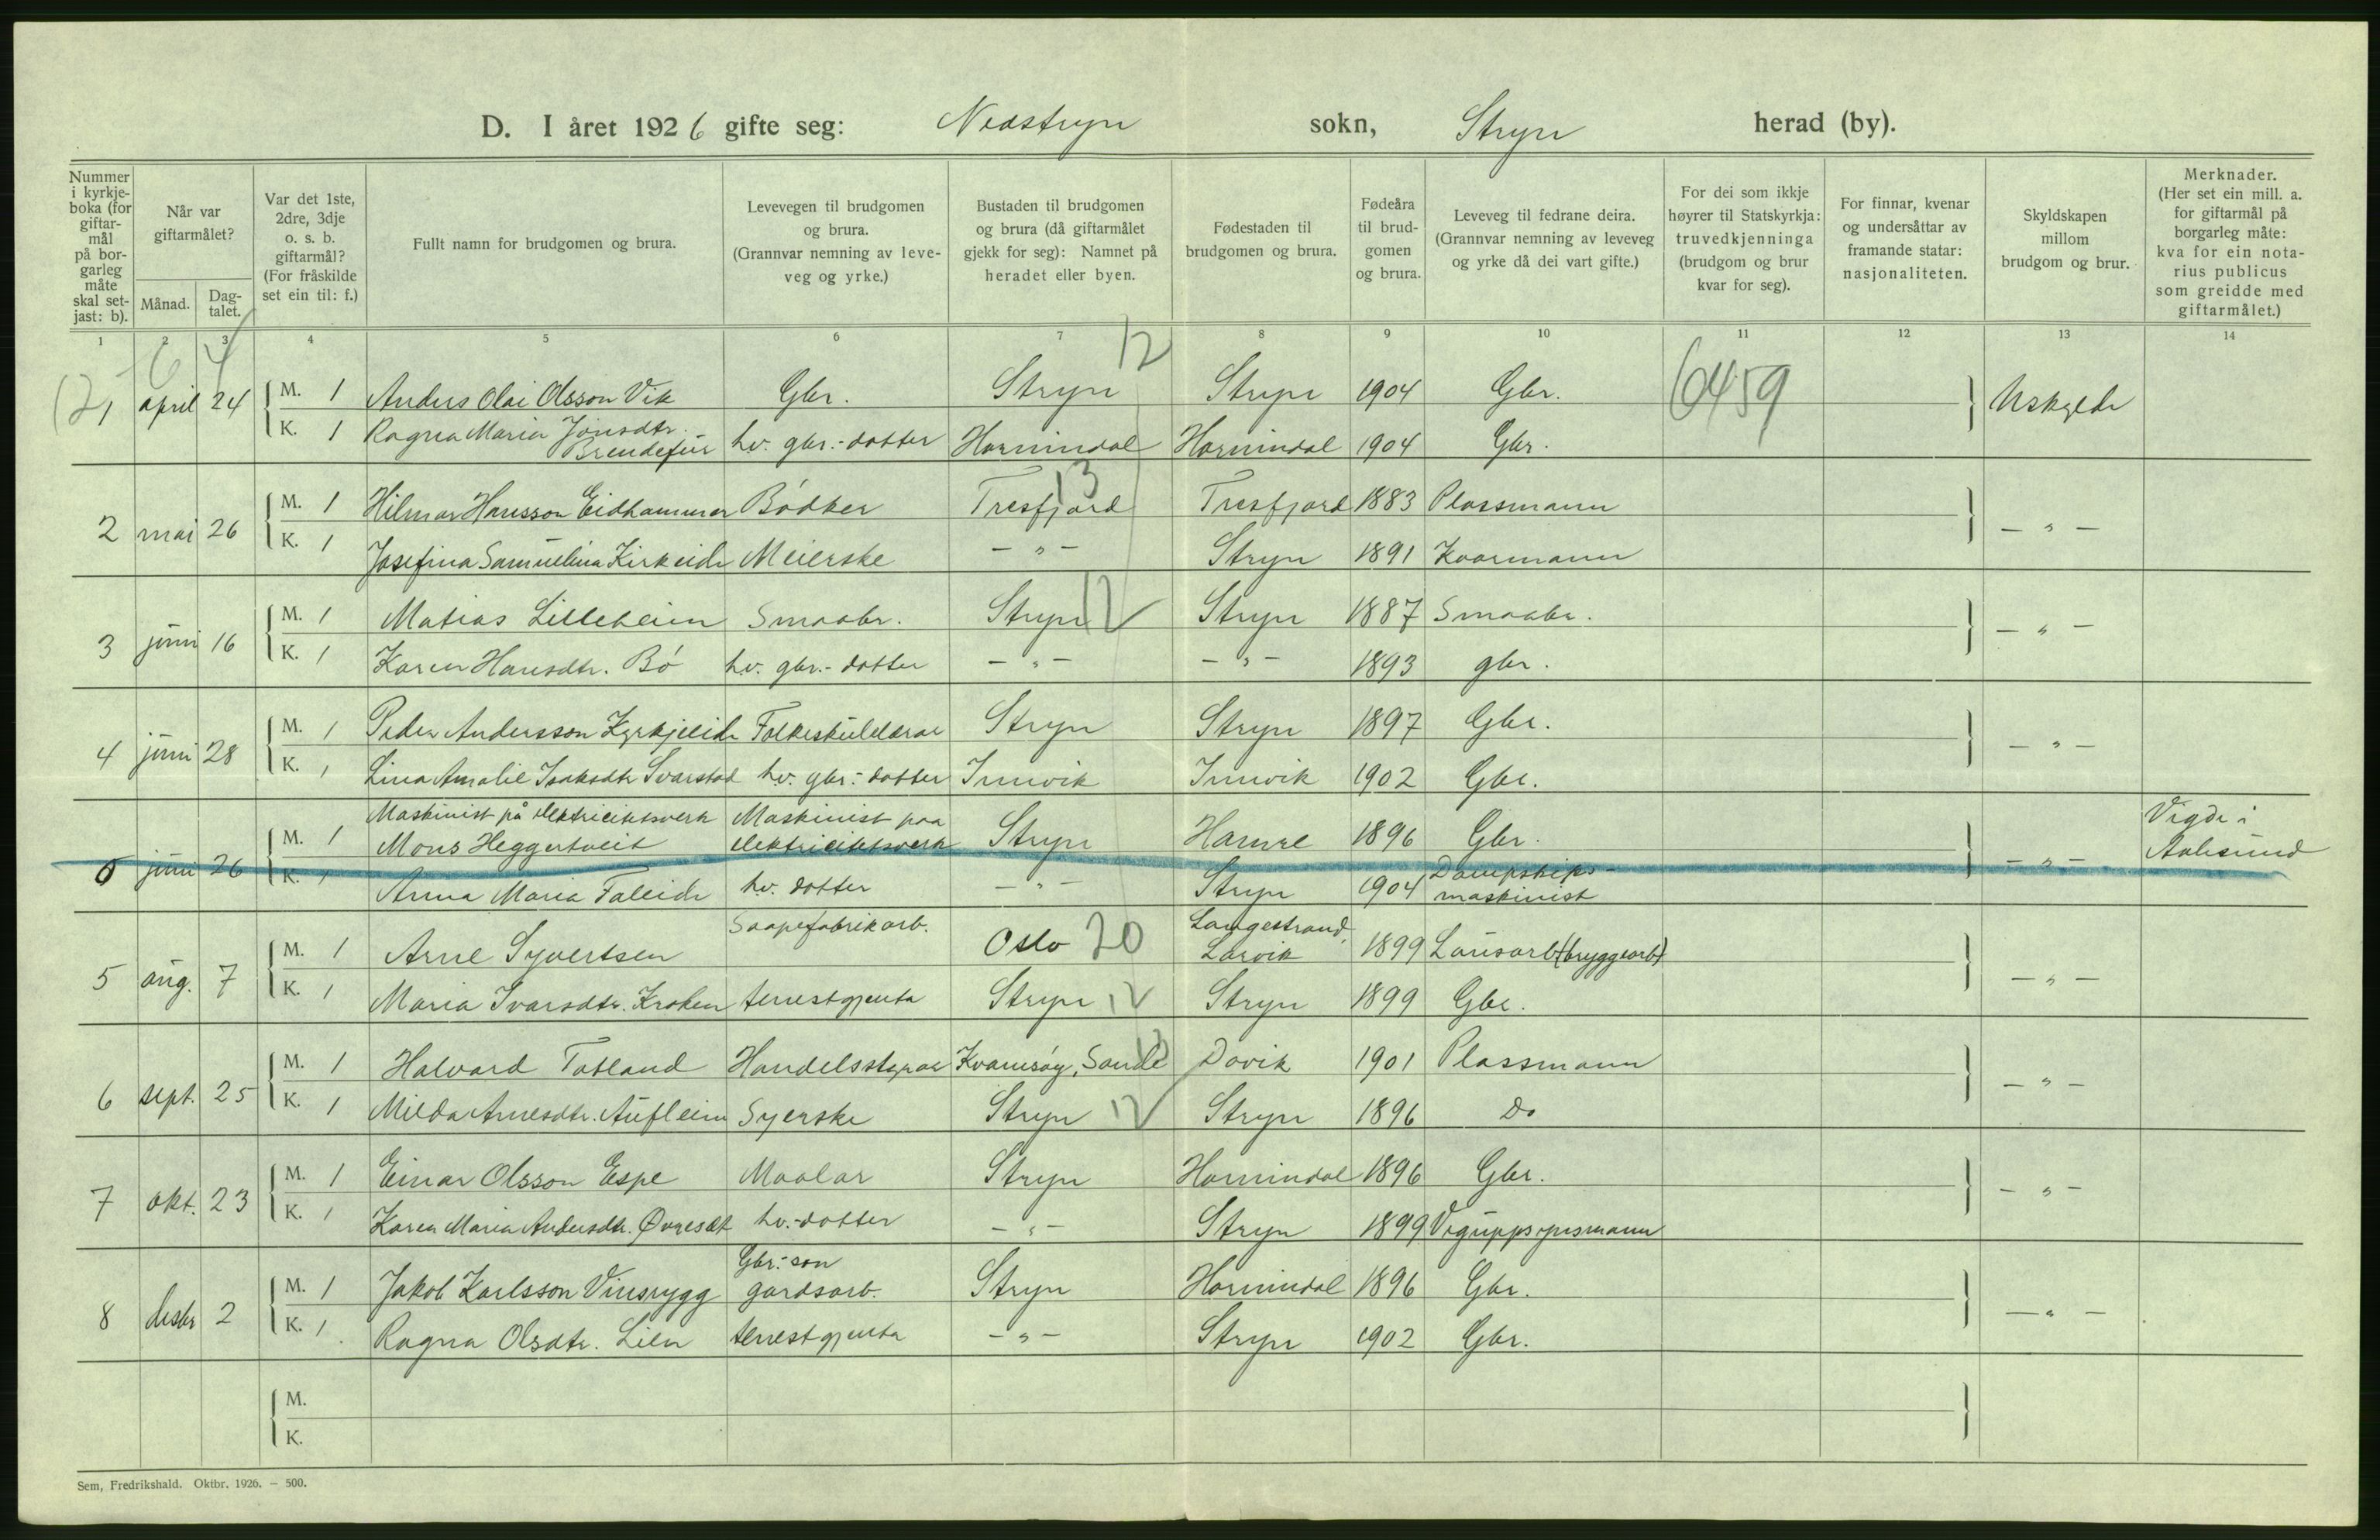 D. I året 1926 gifte seg: Nedstryn sokn, Stryn herad (by).
Nummer i kyrkje-boka (for giftar-mål på bor-garleg måte skal set-jast: b).
Når var giftarmålet?
Månad.
Dag-talet.
Var det 1ste, 2dre, 3dje o. s. b. giftarmål? (For fråskilde set ein til: f.)
Fullt namn for brudgomen og brura.
Levevegen til brudgomen og brura. (Grannvar nemning av leve-veg og yrke.)
Bustaden til brudgomen og brura (då giftarmålet gjekk for seg): Namnet på heradet eller byen.
Fødestaden til brudgomen og brura.
Fødeåra til brud-gomen og brura.
Leveveg til fedrane deira. (Grannvar nemning av leveveg og yrke då dei vart gifte.)
For dei som ikkje høyrer til Statskyrkja: truvedkjenninga (brudgom og brur kvar for seg).
For finnar, kvenar og undersåttar av framande statar: nasjonaliteten.
Skyldskapen millom brudgom og brur.
Merknader. (Her set ein mill. a. for giftarmål på borgarleg måte: kva for ein nota-rius publicus som greidde med giftarmålet.)
1 2 3 4 5 6 7 8 9 10 11 12 13 14
12 6 4 12 6459
1 april 24 M. 1 Anders Olai Olsson Vik Gbr. Stryn Stryn 1904 Gbr. Uskylde
K. 1 Ragna Maria Jonsdtr. Brendefur hv. gbr.-dotter Hornindal Hornindal 1904 Gbr.
13
2 mai 26 M. 1 Hilmar Hansson Eidhammer Bödker Tresfjord Tresfjord 1883 Plassmann - " -
K. 1 Josefina Samueline Kirkeide Meierske - " - Stryn 1891 Kaarmann
3 juni 16 M. 1 Matias Lilleheim Smaabr. Stryn 12 Stryn 1887 Smaabr. - " -
K. 1 Karen Hansdtr. Bö hv. gbr.-dotter - " - - " - 1893 gbr.
4 juni 28 M. 1 Peder Andersson Kyrkjeeide Folkeskulelærar Stryn Stryn 1897 Gbr. - " -
K. 1 Lina Amalie Isaksdtr Svarstad hv. gbr.-dotter Innvik Innvik 1902 Gbr.
Maskinist på elektricitetsverk Maskinist paa
juni 26 M. 1 Mons Heggertveit elektricitetsverk Stryn Hamre 1896 Gbr. - " - Vigde i Aalesund
K. 1 Anna Maria Faleide hv. dotter - " - Stryn 1904 Dampskips-maskinist
5 aug. 7 M. 1 Arne Syvertsen Saapefabrikarb. Oslo 20 Langestrand, Larvik 1899 Lausarb. (bryggearb) - " -
K. 1 Maria Ivarsdtr. Kroken tenestgjenta Stryn 12 Stryn 1899 Gbr.
6 sept. 25 M. 1 Halvard Totland Handelsstyrar Kvamsöy, Sande 13 Davik 1901 Plassmann - " -
K. 1 Milda Arnesdtr. Aufleim Syerske Stryn 12 Stryn 1896 Do
7 okt. 23 M. 1 Einar Olsson Espe Maalar Stryn Hornindal 1896 Gbr. - " -
K. 1 Karen Maria Andersdtr. Øvreset hv.-dotter - " - Stryn 1899 Veguppsynsmann
8 desbr 2 M. 1 Jakob Karlsson Vinsrygg Gbr.-son gardsarb. Stryn Hornindal 1896 Gbr. - " -
K. 1 Ragna Olsdtr. Lien tenestgjenta - " - Stryn 1902 Gbr.
M.
K.
Sem, Fredrikshald. Oktbr. 1926. — 500.